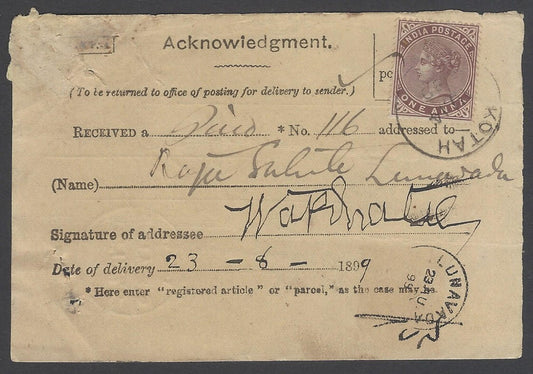 Acknowledgment.
INDIA POSTAGE
ONE ANNA
(To be returned to office of posting for delivery to sender.)
KOTAH
RECEIVED a * No. 116 addressed to
Raja Lunavada
(Name)
Signature of addressee
Date of delivery 23 - 8 - 1899
* Here enter "registered article" or "parcel," as the case may be.
LUNAVADA
23